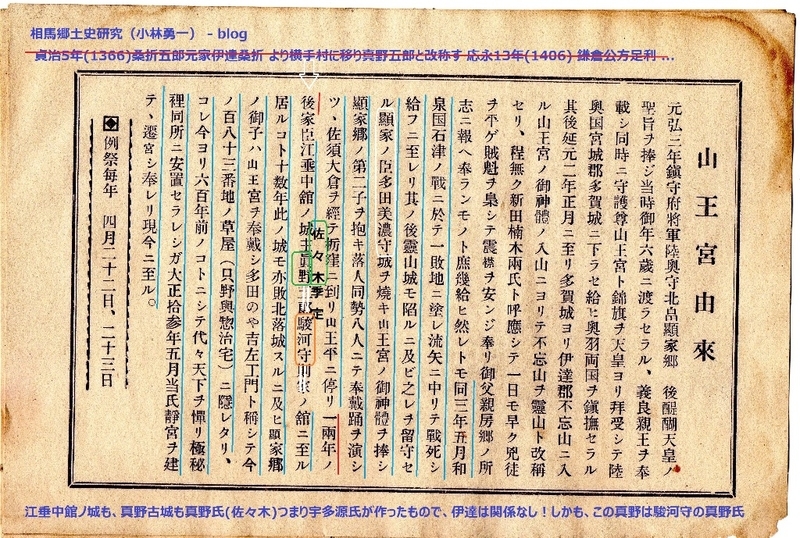 相馬郷土史研究（小林勇一） - blog
貞治5年(1366)桑折五郎元家伊達桑折 より横手村に移り真野五郎と改称す 応永13年(1406) 鎌倉公方足利 …
山王宮由來
元弘三年鎮守府將軍陸奥守北畠顯家郷 後醍醐天皇ノ
聖旨ヲ捧ジ当時御年六歳ニ渡ラセラル、義良親王ヲ奉
載シ同時ニ守護尊山王宮ト錦旗ヲ天皇ヨリ拜受シテ陸
奥国宮城郡多賀城ニ下ラセ給ヒ奥羽両国ヲ鎮撫セラル
其後延元二年正月ニ至リ多賀城ヨリ伊達郡不忘山ニ入
ル山王宮ノ御神體ノ入山ニヨリテ不忘山ヲ靈山ト改稱
セリ、程無ク新田楠木兩氏ト呼應シテ一日モ早ク兇徒
ヲ平ゲ賊魁ヲ梟シテ震襟ヲ安ンジ奉リ御父親房郷ノ所
志ニ報ヘ奉ランモノト庶幾給ヒ然レトモ同三年五月和
泉国石津ノ戰ニ於テ一敗地ニ塗レ流矢ニ中リテ戰死シ
給フニ至レリ其ノ後靈山城モ陥ルニ及ビ之レヲ留守セ
ル顯家ノ臣多田美濃守城ヲ燒キ山王宮ノ御神體ヲ捧シ
顯家郷ノ第二子ヲ抱キ落人同勢八人ニテ奉戴踊ヲ演シ
ツ、佐須大倉ヲ經テ栃窪ニ到リ山王平ニ停リ一兩年ノ
後家臣江垂中舘ノ城主眞野 郎駿河守 家ノ舘ニ至ル
佐々木季定
居ルコト十数年此ノ城モ亦敗北落城スルニ及ヒ顯家郷
ノ御子ハ山王宮ヲ奉戴シ多田のや吉左エ門ト稱シテ今
ノ百八十三番地ノ草屋（只野與惣治宅）ニ隱レタリ、
コレ今ヨリ六百年前ノコトニシテ代々天下ヲ憚リ極秘
裡同所ニ安置セラレシガ大正拾参年五月当氏靜宮ヲ建
テ、遷宮シ奉レリ現今ニ至ル。
◆例祭毎年 四月二十二日、二十三日
江垂中館ノ城も、真野古城も真野氏(佐々木)つまり宇多源氏が作ったもので、伊達は関係なし！しかも、この真野は駿河守の真野氏